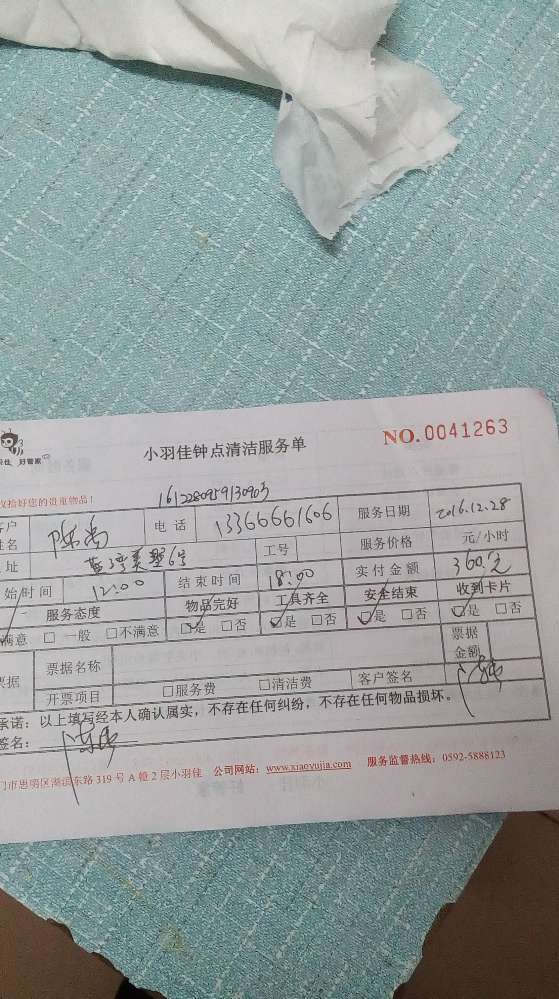 小羽佳钟点清洁服务单
NO. 0041263
好管家
收拾好您的贵重物品!
1612280959130903
电 话 13366661606 服务日期 2016.12.28
工号 服务价格 元/小时
始时间 12:00 结束时间 18:00 实付金额 360元
服务态度 物品完好 工具齐全 安全结束 收到卡片
满意 □ 一般 □不满意 ☑是 □否 ☑是 □否 ☑是 □否 ☑是 □否
票据名称 票据金额
开票项目 □服务费 □清洁费 客户签名
承诺:以上填写经本人确认属实,不存在任何纠纷,不存在任何物品损坏。
签名:
门市思明区湖滨东路 319 号 A 幢 2 层小羽佳 公司网站:www.xiaoyujia.com 服务监督热线:0592-5888123